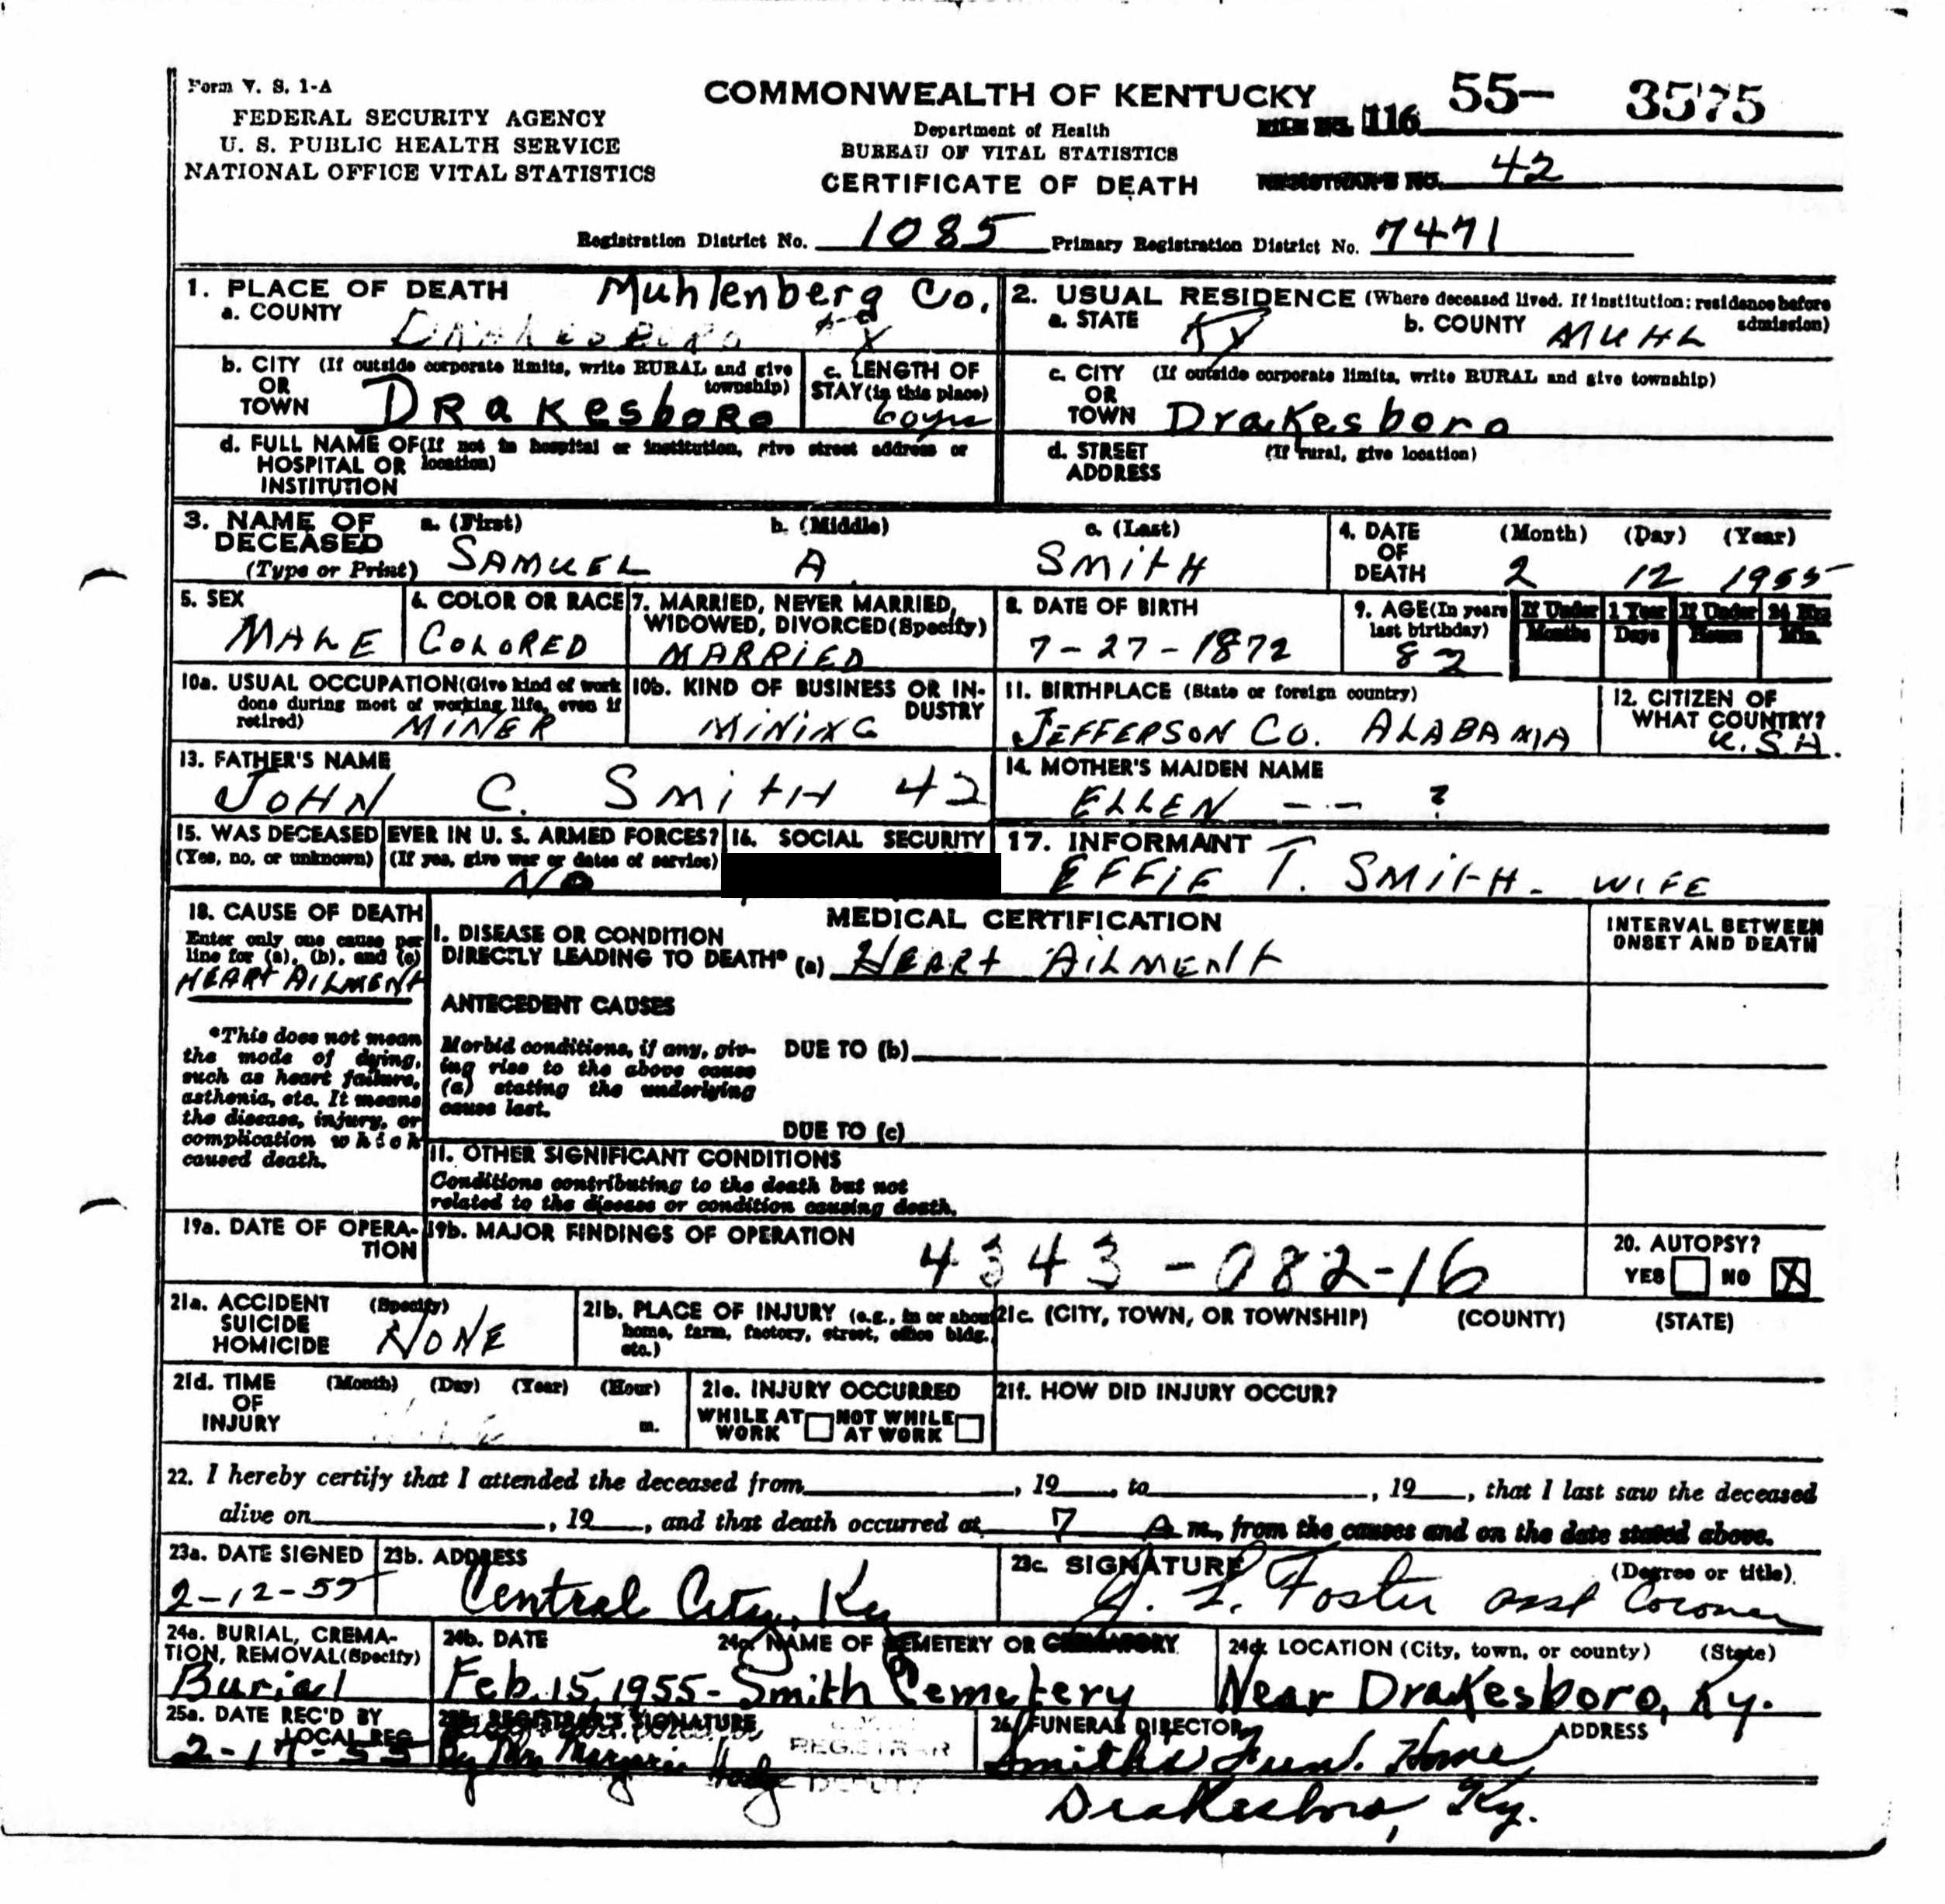 Form V. S. 1-A
FEDERAL SECURITY AGENCY
U. S. PUBLIC HEALTH SERVICE
NATIONAL OFFICE VITAL STATISTICS
COMMONWEALTH OF KENTUCKY
Department of Health
BUREAU OF VITAL STATISTICS
CERTIFICATE OF DEATH
FILE NO. 116 55- 3575
REGISTRAR'S NO. 42
Registration District No. 1085 Primary Registration District No. 7471
1. PLACE OF DEATH Muhlenberg Co.
a. COUNTY Drakesboro Ky
2. USUAL RESIDENCE (Where deceased lived. If institution: residence before admission)
a. STATE Ky b. COUNTY MUHL
b. CITY (If outside corporate limits, write RURAL and give township)
OR
TOWN DRakesboro
c. LENGTH OF
STAY (in this place)
60 yrs
c. CITY (If outside corporate limits, write RURAL and give township)
OR
TOWN Drakesboro
d. FULL NAME OF (If not in hospital or institution, give street address or location)
HOSPITAL OR
INSTITUTION
d. STREET (If rural, give location)
ADDRESS
3. NAME OF DECEASED (Type or Print)
a. (First) b. (Middle) c. (Last)
SAMUEL A SMITH
4. DATE OF DEATH (Month) (Day) (Year)
2 12 1955
5. SEX
MALE
6. COLOR OR RACE
COLORED
7. MARRIED, NEVER MARRIED, WIDOWED, DIVORCED (Specify)
MARRIED
8. DATE OF BIRTH
7-27-1872
9. AGE (In years last birthday)
82
If Under 1 Year If Under 24 Hrs
Months Days Hours Min.
10a. USUAL OCCUPATION (Give kind of work done during most of working life, even if retired)
MINER
10b. KIND OF BUSINESS OR INDUSTRY
MINING
11. BIRTHPLACE (State or foreign country)
JEFFERSON CO. ALABAMA
12. CITIZEN OF WHAT COUNTRY?
U.S.A.
13. FATHER'S NAME
JOHN C. SMITH 42
14. MOTHER'S MAIDEN NAME
ELLEN -- ?
15. WAS DECEASED EVER IN U. S. ARMED FORCES?
(Yes, no, or unknown) (If yes, give war or dates of service)
NO
16. SOCIAL SECURITY
17. INFORMANT
EFFIE T. SMITH - WIFE
18. CAUSE OF DEATH
Enter only one cause per line for (a), (b), and (c)
HEART AILMENT
*This does not mean the mode of dying, such as heart failure, asthenia, etc. It means the disease, injury, or complication which caused death.
MEDICAL CERTIFICATION
INTERVAL BETWEEN ONSET AND DEATH
I. DISEASE OR CONDITION
DIRECTLY LEADING TO DEATH* (a) HEART AILMENT
ANTECEDENT CAUSES
Morbid conditions, if any, giving rise to the above cause (a) stating the underlying cause last.
DUE TO (b)
DUE TO (c)
II. OTHER SIGNIFICANT CONDITIONS
Conditions contributing to the death but not
related to the disease or condition causing death.
19a. DATE OF OPERATION
19b. MAJOR FINDINGS OF OPERATION
4343-082-16
20. AUTOPSY?
YES NO X
21a. ACCIDENT (Specify)
SUICIDE
HOMICIDE
NONE
21b. PLACE OF INJURY (e.g., in or about home, farm, factory, street, office bldg., etc.)
21c. (CITY, TOWN, OR TOWNSHIP) (COUNTY) (STATE)
21d. TIME OF INJURY (Month) (Day) (Year) (Hour)
m.
21e. INJURY OCCURRED
WHILE AT WORK NOT WHILE AT WORK
21f. HOW DID INJURY OCCUR?
22. I hereby certify that I attended the deceased from , 19 , to , 19 , that I last saw the deceased
alive on , 19 , and that death occurred at 7 A m., from the causes and on the date stated above.
23a. DATE SIGNED
2-12-55
23b. ADDRESS
Central City, Ky
23c. SIGNATURE (Degree or title)
J. L. Foster asst Coroner
24a. BURIAL, CREMATION, REMOVAL (Specify)
Burial
24b. DATE
Feb. 15, 1955-
24c. NAME OF CEMETERY OR CREMATORY
Smith Cemetery
24d. LOCATION (City, town, or county) (State)
Near Drakesboro, Ky.
25a. DATE REC'D BY LOCAL REG.
2-17-55
25b. REGISTRAR'S SIGNATURE
By Mrs Marjorie
REGISTRAR
DEPUTY
26. FUNERAL DIRECTOR ADDRESS
Smiths Fun. Home
Drakesboro, Ky.